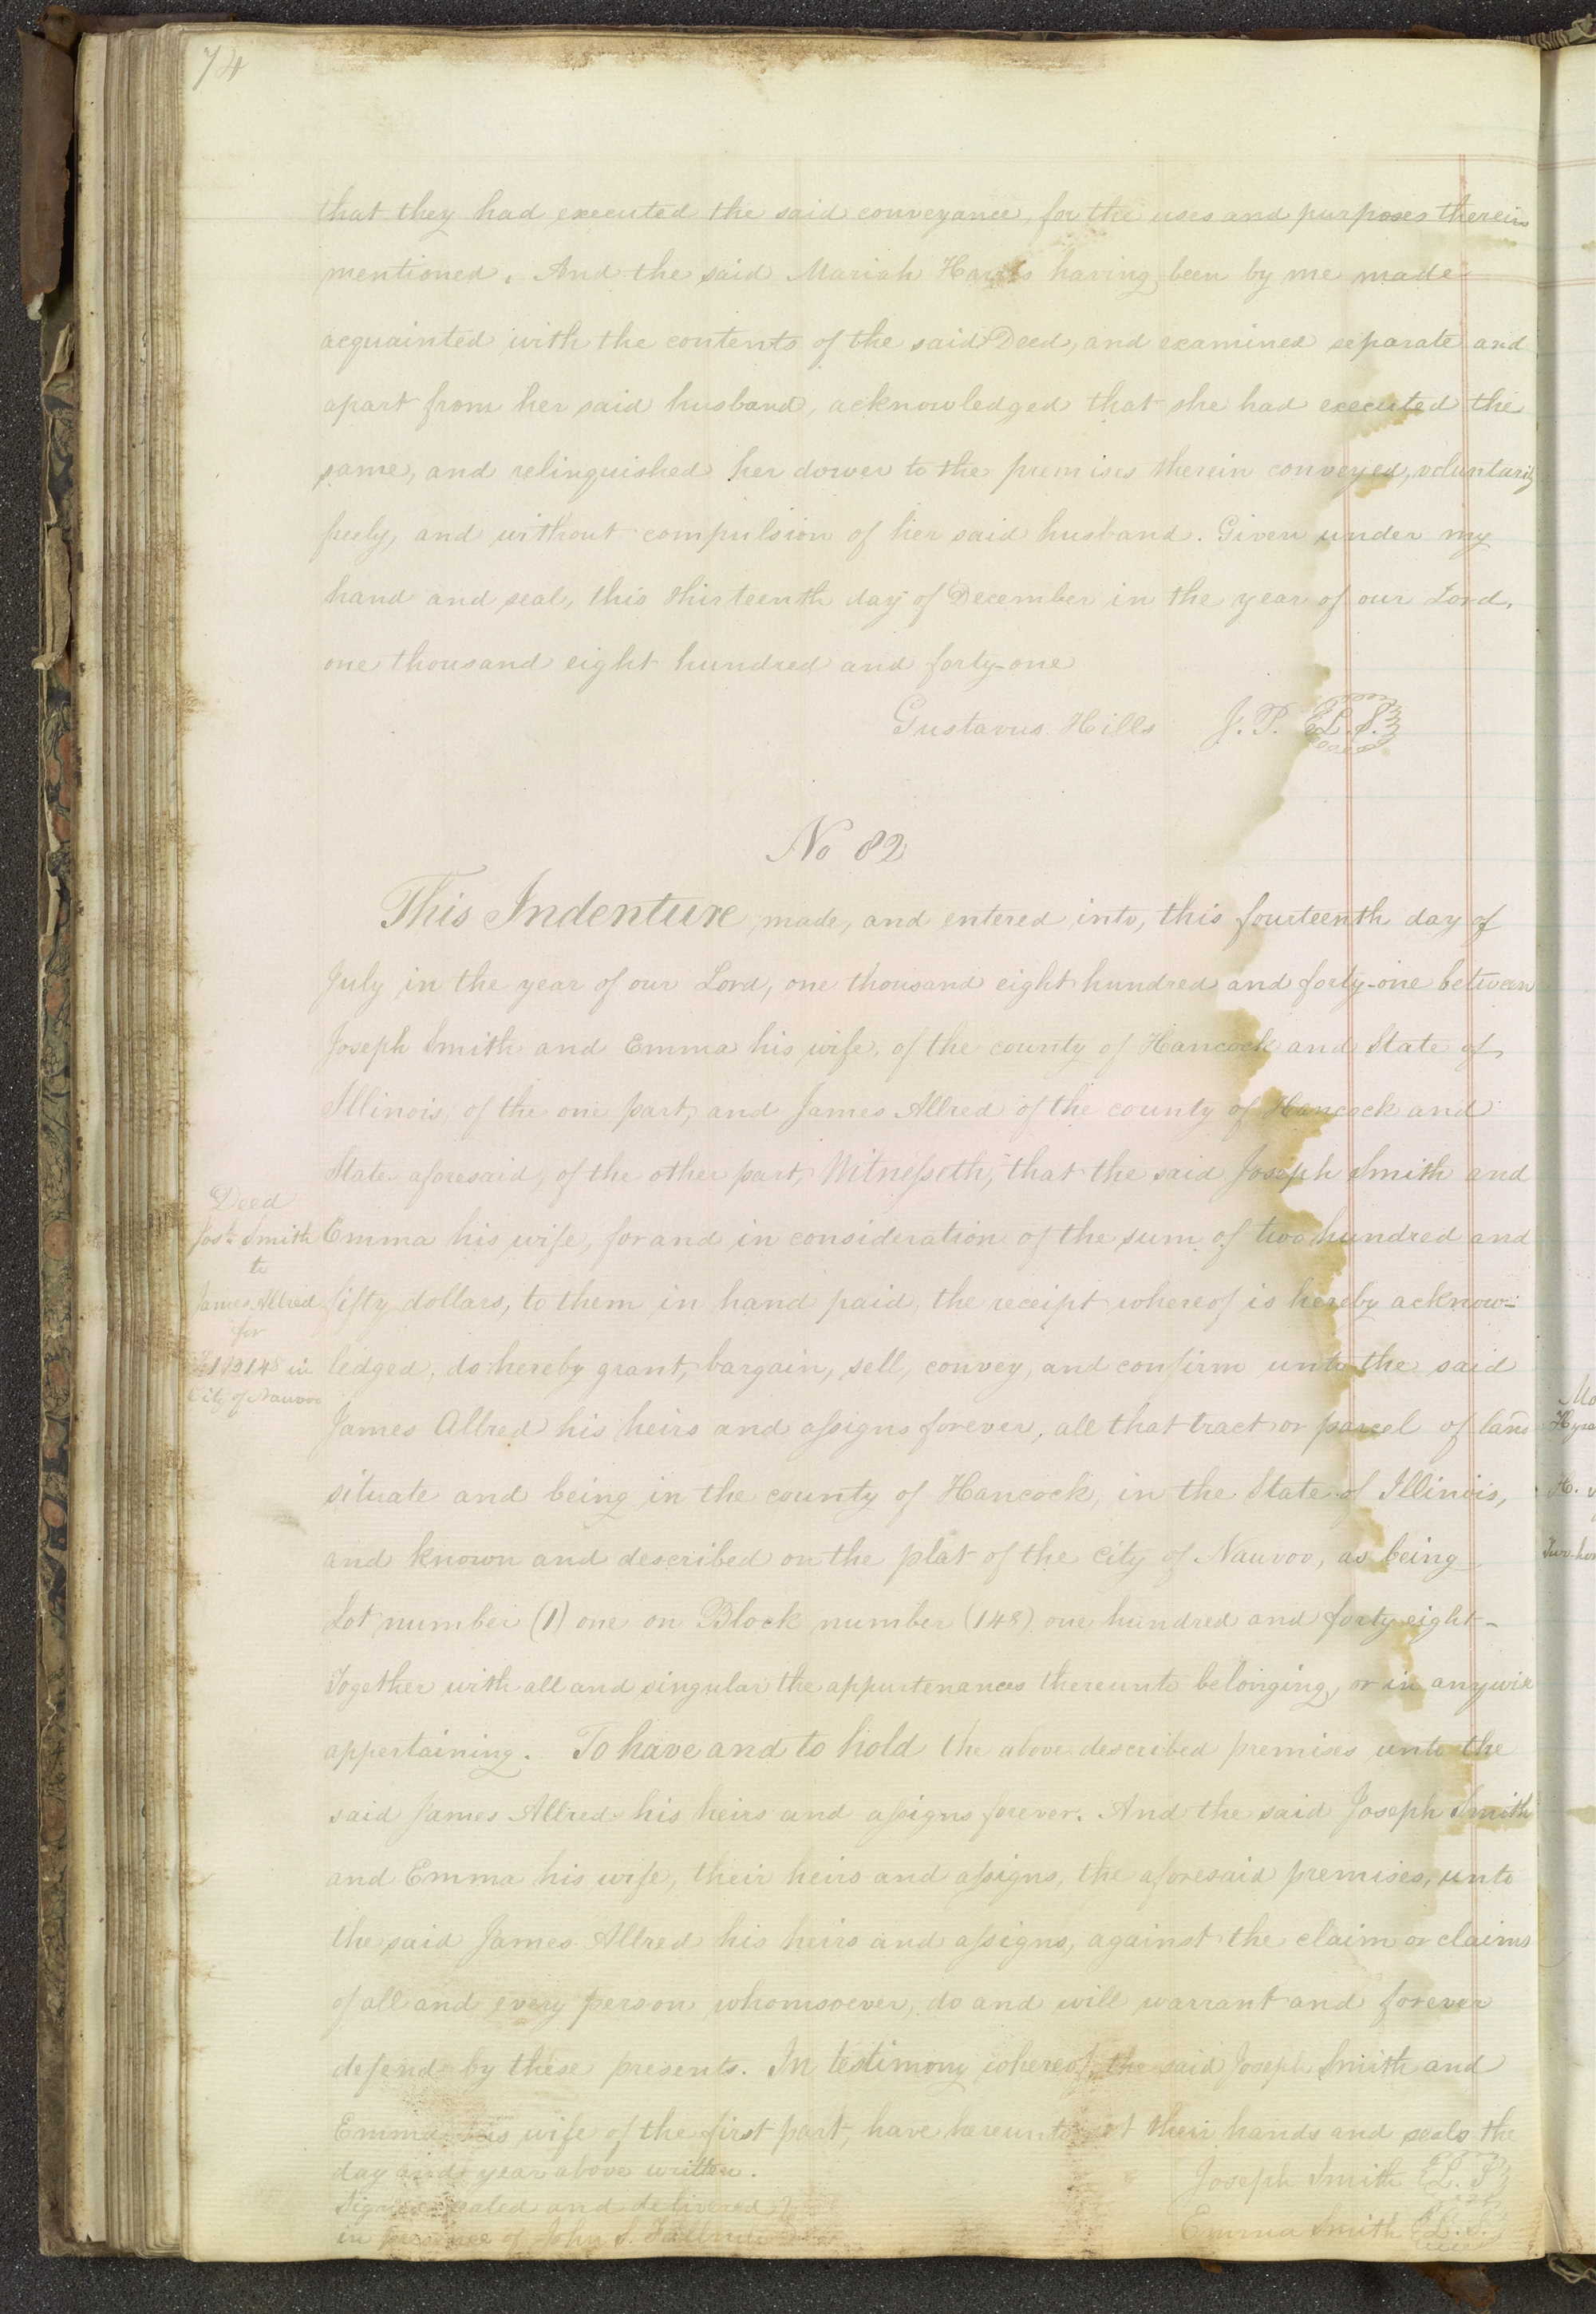 74
that they had executed the said conveyance, for the uses and purposes therein
mentioned. And the said Mariah Harris having been by me made
acquainted with the contents of the said Deed, and examined separate and
apart from her said husband, acknowledged that she had executed the
same, and relinquished her dower to the premises therein conveyed, voluntarily
freely, and without compulsion of her said husband. Given under my
hand and seal, this thirteenth day of December in the year of our Lord,
one thousand eight hundred and forty-one
Gustavus Hills J. P. L.S.
No 82
This Indenture made, and entered into, this fourteenth day of
July in the year of our Lord, one thousand eight hundred and forty-one between
Joseph Smith and Emma his wife, of the county of Hancock and State of
Illinois, of the one part, and James Allred of the county of Hancock and
State aforesaid, of the other part, Witnesseth, that the said Joseph Smith and
Emma his wife, for and in consideration of the sum of two hundred and
fifty dollars, to them in hand paid, the receipt whereof is hereby acknow-
ledged, do hereby grant, bargain, sell, convey, and confirm unto the said
James Allred his heirs and assigns forever, all that tract or parcel of land
situate and being in the county of Hancock, in the State of Illinois,
and known and described on the plat of the city of Nauvoo, as being
Lot number (1) one on Block number (148) one hundred and forty eight-
Together with all and singular the appurtenances thereunto belonging, or in anywise
appertaining. To have and to hold the above described premises unto the
said James Allred his heirs and assigns forever. And the said Joseph Smith
and Emma his wife, their heirs and assigns, the aforesaid premises, unto
the said James Allred his heirs and assigns, against the claim or claims
of all and every person whomsoever, do and will warrant and forever
defend by these presents. In testimony whereof, the said Joseph Smith and
Emma his wife of the first part, have hereunto set their hands and seals the
day and year above written.
Signed sealed and delivered
in presence of John S. Fullmer
Joseph Smith L.S.
Emma Smith L.S.
Deed
Josh. Smith
to
James Allred
for
148 in
City of Nauvoo